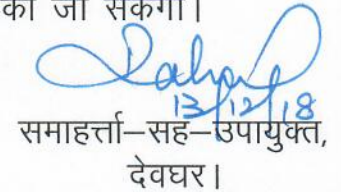 की जा सकेगी।
13/12/18
समाहर्त्ता–सह–उपायुक्त,
देवघर।